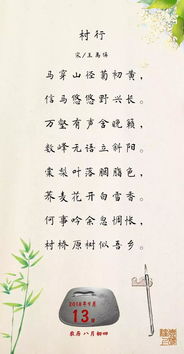 村行
宋/王禹偁
马穿山径菊初黄，
信马悠悠野兴长。
万壑有声含晚籁，
数峰无语立斜阳。
棠梨叶落胭脂色，
荞麦花开白雪香。
何事吟余忽惆怅，
村桥原树似吾乡。
2018年9月
13
农历 八月初四